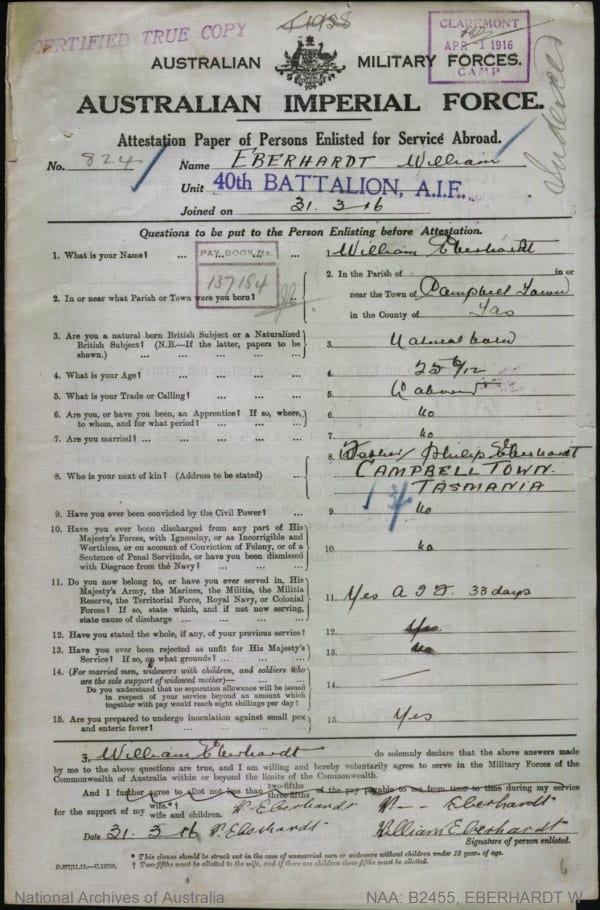 CERTIFIED TRUE COPY
CLAREMONT
APR -1 1916
CAMP
AUSTRALIAN MILITARY FORCES.
AUSTRALIAN IMPERIAL FORCE.
Attestation Paper of Persons Enlisted for Service Abroad.
No. 824 Name EBERHARDT William
Unit 40th BATTALION, A.I.F.
Joined on 31.3.16
Questions to be put to the Person Enlisting before Attestation.
1. What is your Name? ... ... ... ... 1. William Eberhardt
PAY BOOK No.
137184
2. In or near what Parish or Town were you born? 2. In the Parish of in or
near the Town of Campbell Town
in the County of Tas
3. Are you a natural born British Subject or a Naturalized
British Subject? (N.B.—If the latter, papers to be
shown.) ... ... ... ... 3. Natural born
4. What is your Age? ... ... ... ... 4. 25 6/12
5. What is your Trade or Calling? ... ... ... 5.
6. Are you, or have you been, an Apprentice? If so, where,
to whom, and for what period? ... ... ... 6. No
7. Are you married? ... ... ... ... 7. No
8. Who is your next of kin? (Address to be stated) ... 8. Father Philip Eberhardt
CAMPBELL TOWN.
TASMANIA
9. Have you ever been convicted by the Civil Power? ... 9. No
10. Have you ever been discharged from any part of His
Majesty's Forces, with Ignominy, or as Incorrigible and
Worthless, or on account of Conviction of Felony, or of a
Sentence of Penal Servitude, or have you been dismissed
with Disgrace from the Navy? ... ... 10. No
11. Do you now belong to, or have you ever served in, His
Majesty's Army, the Marines, the Militia, the Militia
Reserve, the Territorial Force, Royal Navy, or Colonial
Forces? If so, state which, and if not now serving,
state cause of discharge ... ... ... 11. Yes A I F. 33 days
12. Have you stated the whole, if any, of your previous service? 12. Yes.
13. Have you ever been rejected as unfit for His Majesty's
Service? If so, on what grounds? ... ... ... 13. No
14. (For married men, widowers with children, and soldiers who
are the sole support of widowed mother)—
Do you understand that no separation allowance will be issued
in respect of your service beyond an amount which
together with pay would reach eight shillings per day? 14. —
15. Are you prepared to undergo inoculation against small pox
and enteric fever? ... ... ... ... 15. Yes
I, William Eberhardt do solemnly declare that the above answers made
by me to the above questions are true, and I am willing and hereby voluntarily agree to serve in the Military Forces of the
Commonwealth of Australia within or beyond the limits of the Commonwealth.
And I further agree to allot not less than two-fifths three-fifths of the pay payable to me from time to time during my service
for the support of my wife.*† wife and children. W. Eberhardt W— Eberhardt
Date 31. 3. 16 W. Eberhardt William Eberhardt
Signature of person enlisted.
* This clause should be struck out in the case of unmarried men or widowers without children under 18 years of age.
† Two-fifths must be allotted to the wife, and if there are children three-fifths must be allotted.
6
National Archives of Australia NAA: B2455, EBERHARDT W